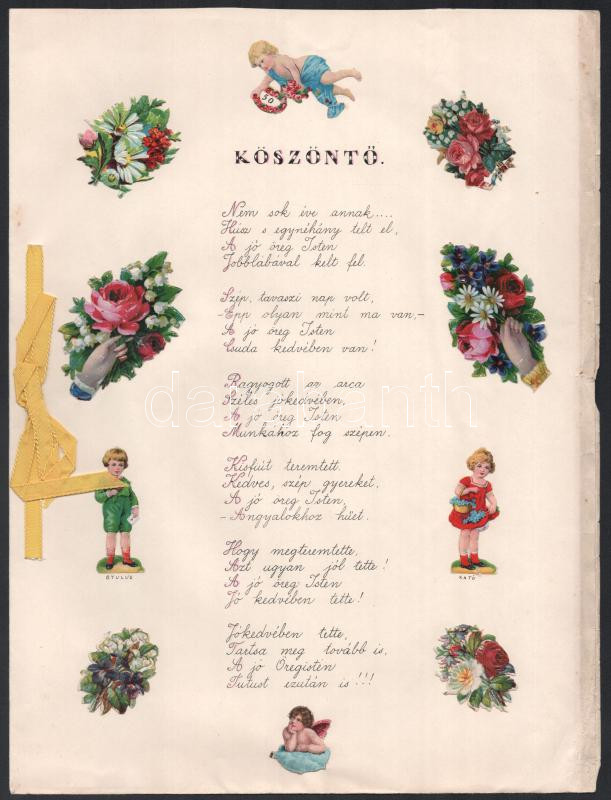 50
KÖSZÖNTŐ.
Nem sok éve annak....
Húsz s egynéhány telt el,
A jó öreg Isten
Jobblábával kelt fel.
Szép, tavaszi nap volt,
-Épp olyan mint ma van,-
A jó öreg Isten
Csuda kedvében van!
Ragyogott az arca
Széles jókedvében,
A jó öreg Isten
Munkához fog szépen.
Kisfiút teremtett.
Kedves, szép gyereket,
A jó öreg Isten,
-Angyalokhoz hűet.
Hogy megteremtette,
Azt ugyan jól tette!
A jó öreg Isten
Jó kedvében tette!
Jókedvében tette,
Tartsa meg tovább is,
A jó Öregisten
Tutust ezután is!!!
ÖTULUS
KATÓ
darabanth